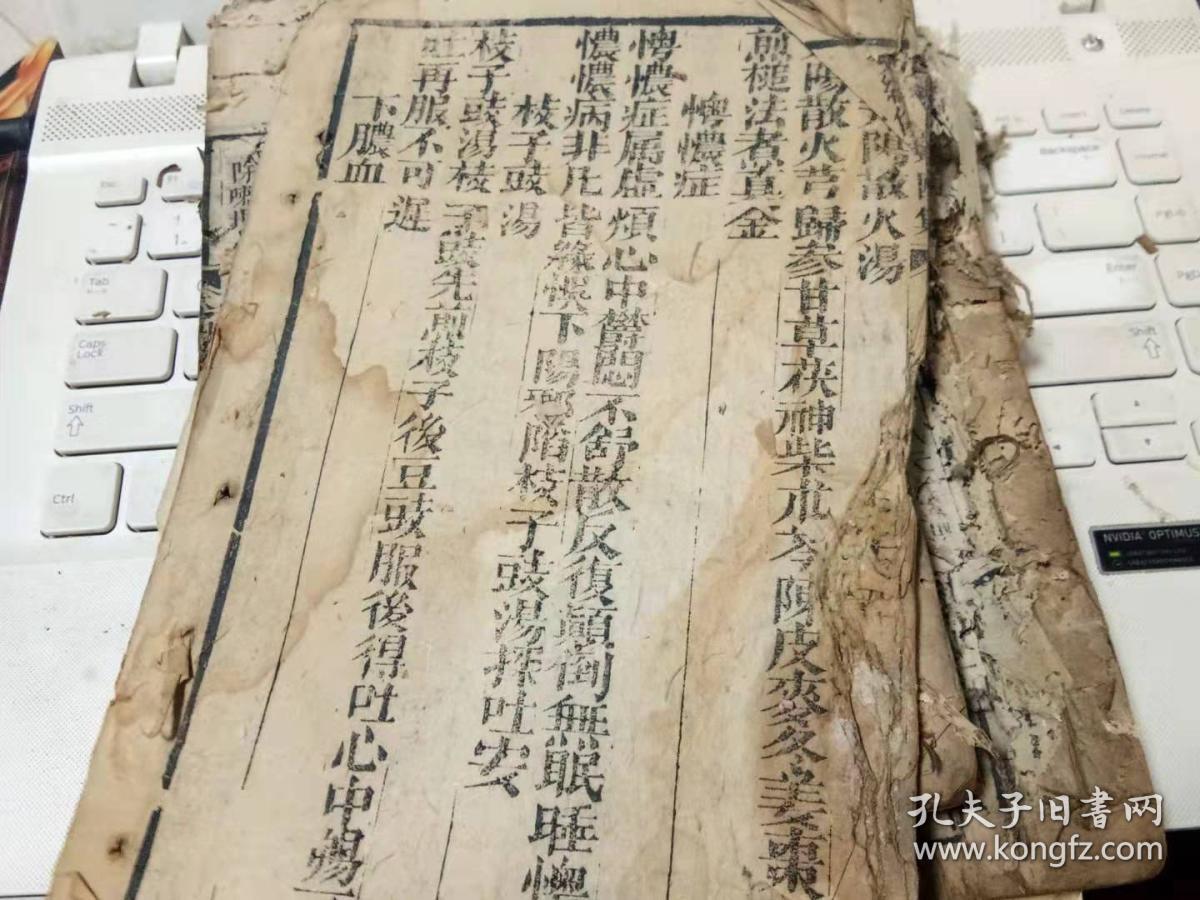 陽散火湯
陽散火昔歸参甘草茯神柴朮芩陳皮麥冬姜棗
煎槌法煮黃金
懊憹症
懊憹症属虚煩心中欝悶不舒散反復顛倒無眠睡懊
憹憹病非凡皆緣悞下陽邪陷枝子豉湯探吐安
枝子豉湯
枝子豉湯枝子豉先煎枝子後豆豉服後得吐心中
吐再服不可遲
下膿血
Esc
Tab
Caps Lock
Shift
Ctrl
Backspace
Enter
Shift
NVIDIA OPTIMUS
孔夫子旧书网
www.kongfz.com